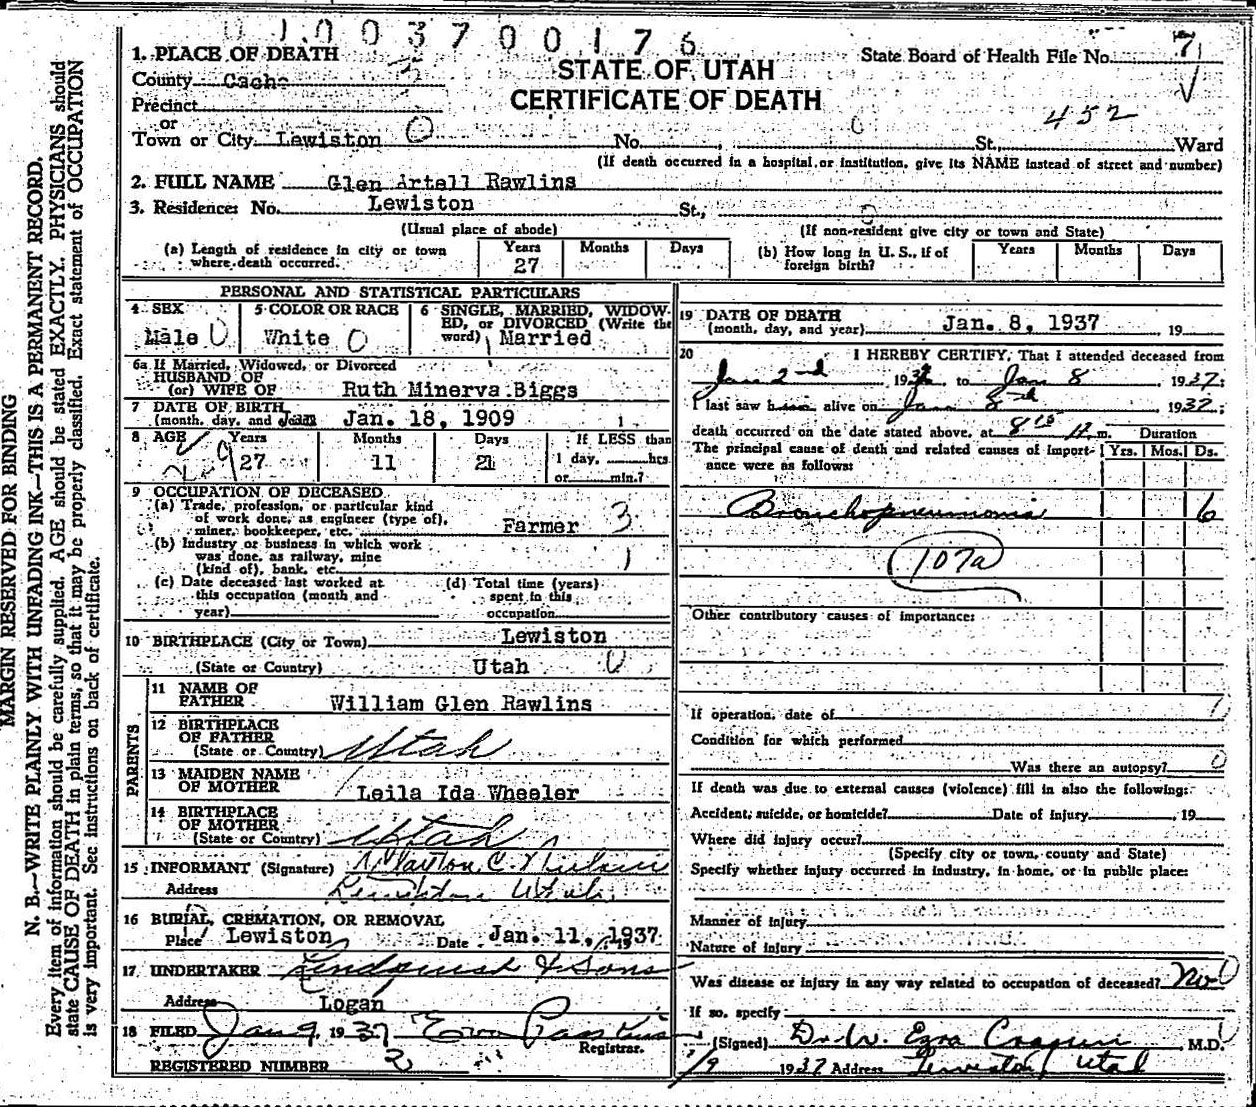 01003700176
State Board of Health File No. 7
STATE OF UTAH
CERTIFICATE OF DEATH
452
1. PLACE OF DEATH
County Cache
Precinct
or
Town or City Lewiston 0 No. St., Ward
(If death occurred in a hospital or institution, give its NAME instead of street and number)
2. FULL NAME Glen Artell Rawlins
3. Residence: No. Lewiston St.,
(Usual place of abode) (If non-resident give city or town and State)
(a) Length of residence in city or town where death occurred. Years 27 Months Days
(b) How long in U. S., if of foreign birth? Years Months Days
PERSONAL AND STATISTICAL PARTICULARS
4 SEX Male 0
5 COLOR OR RACE White 0
6 SINGLE, MARRIED, WIDOW-
ED, or DIVORCED (Write the
word) Married
6a If Married, Widowed, or Divorced
HUSBAND OF
(or) WIFE OF Ruth Minerva Biggs
7 DATE OF BIRTH
(month, day, and year) Jan. 18, 1909
8 AGE Years 27 Months 11 Days 21
If LESS than
1 day, hrs
or min.?
9 OCCUPATION OF DECEASED
(a) Trade, profession, or particular kind
of work done, as engineer (type of),
miner, bookkeeper, etc. Farmer 3
(b) Industry or business in which work
was done, as railway, mine
(kind of), bank, etc. 1
(c) Date deceased last worked at
this occupation (month and
year)
(d) Total time (years)
spent in this
occupation
10 BIRTHPLACE (City or Town) Lewiston
(State or Country) Utah 0
PARENTS
11 NAME OF
FATHER William Glen Rawlins
12 BIRTHPLACE
OF FATHER
(State or Country) Utah
13 MAIDEN NAME
OF MOTHER Leila Ida Wheeler
14 BIRTHPLACE
OF MOTHER
(State or Country) Utah
15 INFORMANT (Signature) C.
Address Lewiston Utah.
16 BURIAL, CREMATION, OR REMOVAL
Place Lewiston Date Jan. 11, 1937
17 UNDERTAKER Lindquist & Sons
Address Logan
18 FILED Jan 9, 1937
Registrar.
REGISTERED NUMBER 2
19 DATE OF DEATH
(month, day, and year) Jan. 8, 1937 19
20 I HEREBY CERTIFY, That I attended deceased from
Jan 2nd 1937 to Jan 8 1937;
I last saw him alive on Jan 8th 1937;
death occurred on the date stated above, at m. Duration
The principal cause of death and related causes of import-
ance were as follows: Yrs. Mos. Ds.
Bronchopneumonia 6
107a
Other contributory causes of importance:
If operation, date of
Condition for which performed
Was there an autopsy? 0
If death was due to external causes (violence) fill in also the following:
Accident, suicide, or homicide? Date of Injury 19
Where did injury occur?
(Specify city or town, county and State)
Specify whether injury occurred in industry, in home, or in public place:
Manner of injury
Nature of injury
Was disease or injury in any way related to occupation of deceased? No
If so, specify
(Signed) Dr. W. Ezra M.D.
1/9 1937 Address Lewiston, Utah
MARGIN RESERVED FOR BINDING
N. B.—WRITE PLAINLY WITH UNFADING INK—THIS IS A PERMANENT RECORD.
Every item of information should be carefully supplied. AGE should be stated EXACTLY. PHYSICIANS should
state CAUSE OF DEATH in plain terms, so that it may be properly classified. Exact statement of OCCUPATION
is very important. See instructions on back of certificate.